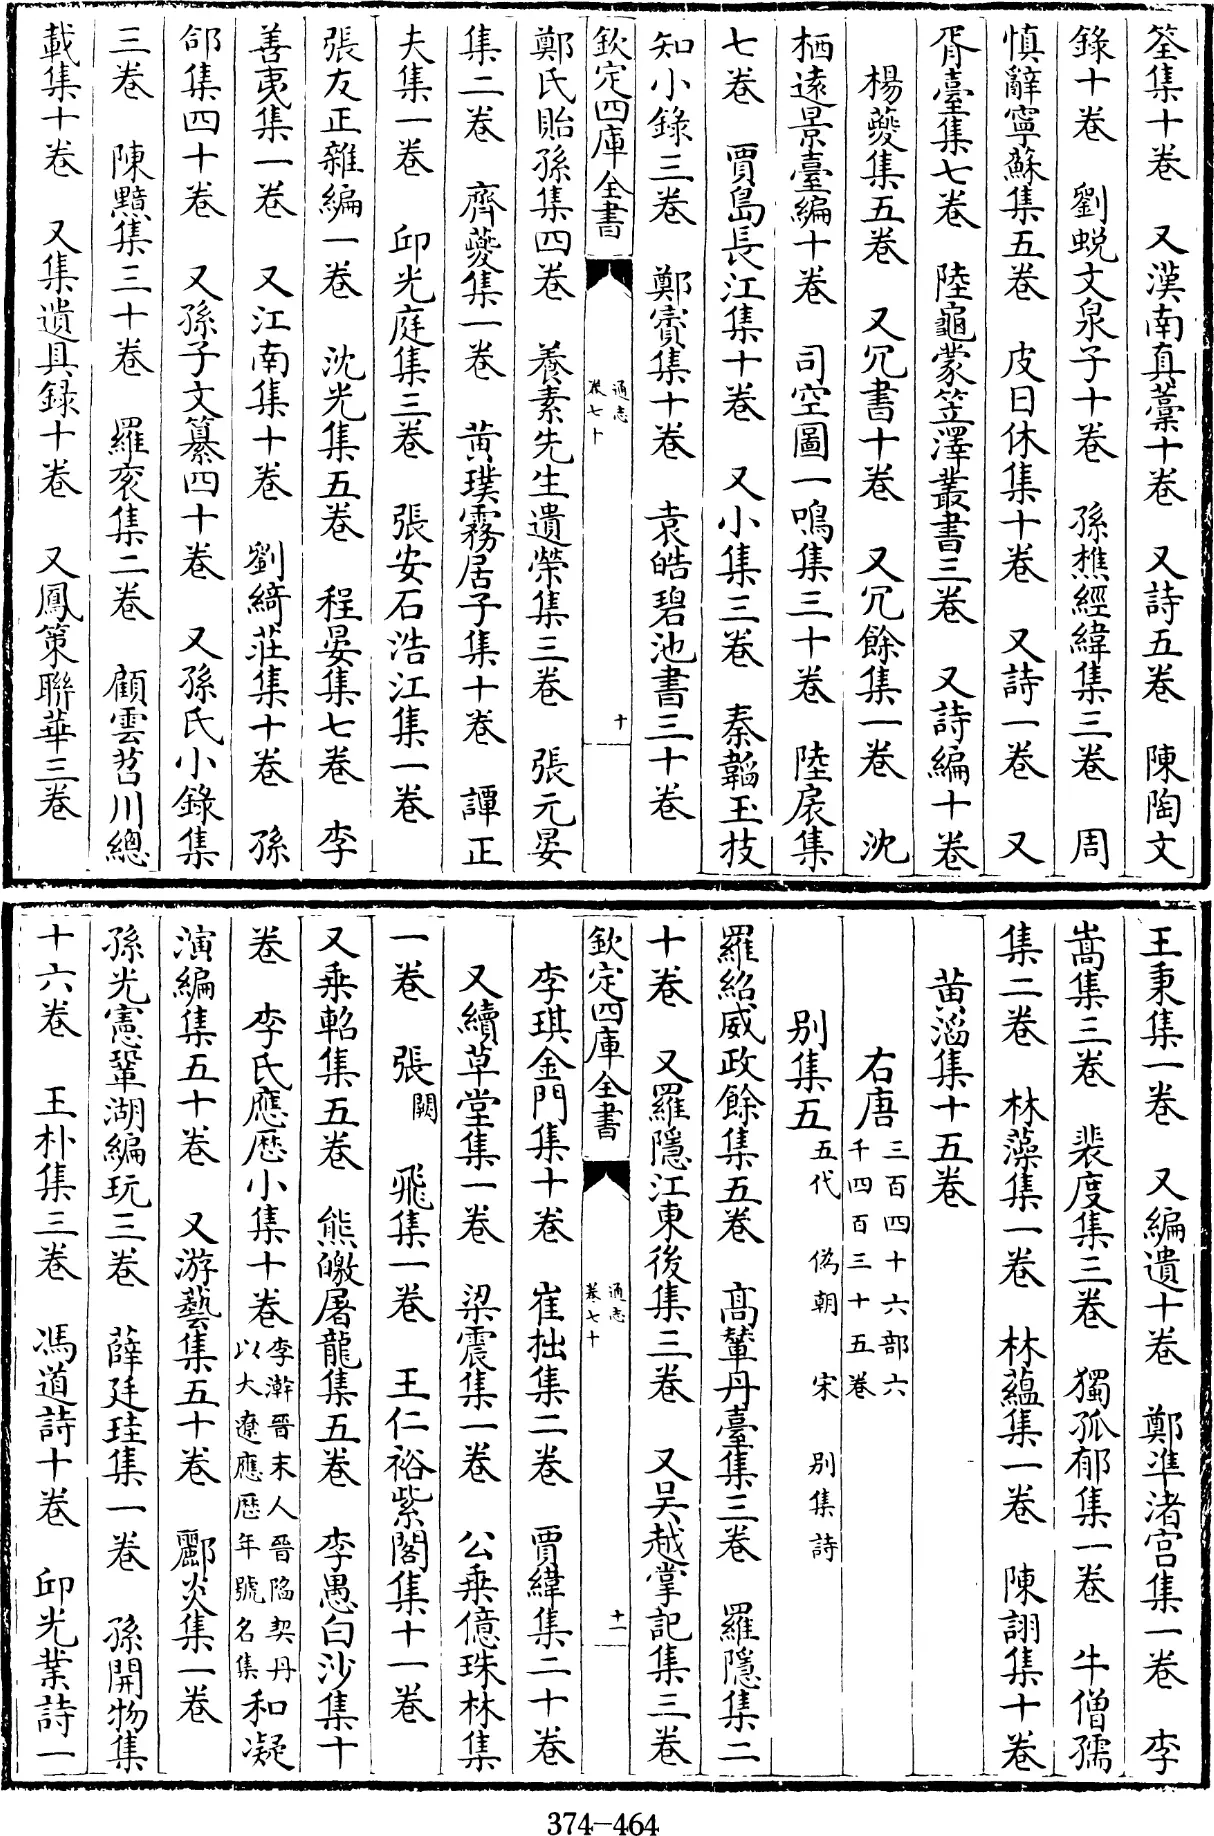 筌集十卷　又漢南真藁十卷　又詩五卷　陳陶文
錄十卷　劉蛻文泉子十卷　孫樵經緯集三卷　周
慎辭寧蘇集五卷　皮日休集十卷　又詩一卷　又
胥臺集七卷　陸龜蒙笠澤叢書三卷　又詩編十卷
楊夔集五卷　又冗書十卷　又冗餘集一卷　沈
栖遠景臺編十卷　司空圖一鳴集三十卷　陸扆集
七卷　賈島長江集十卷　又小集三卷　秦韜玉投
知小錄三卷　鄭賨集十卷　袁皓碧池書三十卷
欽定四庫全書　通志卷七十　十
鄭氏貽孫集四卷　養素先生遺榮集三卷　張元晏
集二卷　齊夔集一卷　黄璞霧居子集十卷　譚正
夫集一卷　邱光庭集三卷　張安石浩江集一卷
張友正雜編一卷　沈光集五卷　程晏集七卷　李
善夷集一卷　又江南集十卷　劉綺莊集十卷　孫
郃集四十卷　又孫子文纂四十卷　又孫氏小錄集
三卷　陳黯集三十卷　羅衮集二卷　顧雲苕川總
載集十卷　又集遺具録十卷　又鳳策聯華三卷
王秉集一卷　又編遺十卷　鄭準渚宫集一卷　李
嵩集三卷　裴度集三卷　獨孤郁集一卷　牛僧孺
集二卷　林藻集一卷　林蘊集一卷　陳詡集十卷
黄滔集十五卷
右唐三百四十六部六千四百三十五卷
别集五五代　偽朝　宋　别集詩
羅紹威政餘集五卷　高輦丹臺集三卷　羅隱集二
十卷　又羅隱江東後集三卷　又吴越掌記集三卷
欽定四庫全書　通志卷七十　十一
李琪金門集十卷　崔拙集二卷　賈緯集二十卷
又續草堂集一卷　梁震集一卷　公乘億珠林集
一卷　張闕　飛集一卷　王仁裕紫閣集十一卷
又乘軺集五卷　熊皦屠龍集五卷　李愚白沙集十
卷　李氏應厯小集十卷李澣晋末人晋陷契丹以大遼應厯年號名集和凝
演編集五十卷　又游藝集五十卷　酈炎集一卷
孫光憲鞏湖編玩三卷　薛廷珪集一卷　孫開物集
十六卷　王朴集三卷　馮道詩十卷　邱光業詩一
374-464